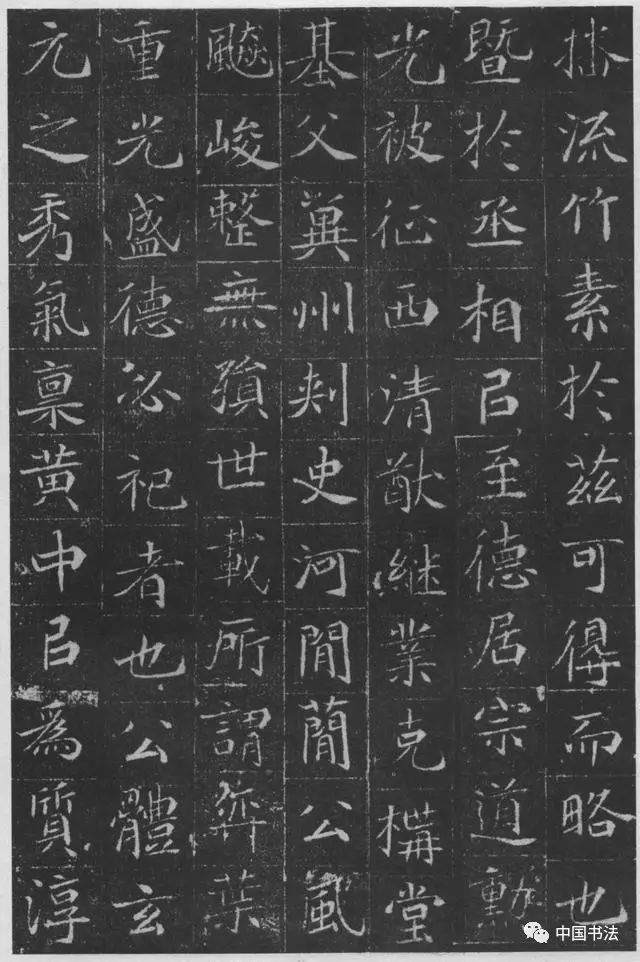 播流竹素於茲可得而略也
暨於丞相㠯至德居宗道勳
光被征西清猷继業克構堂
基父冀州刺史河閒簡公風
飈峻整無殞世載所謂弈葉
重光盛德必祀者也公體玄
元之秀氣稟黄中㠯為質淳
中国书法